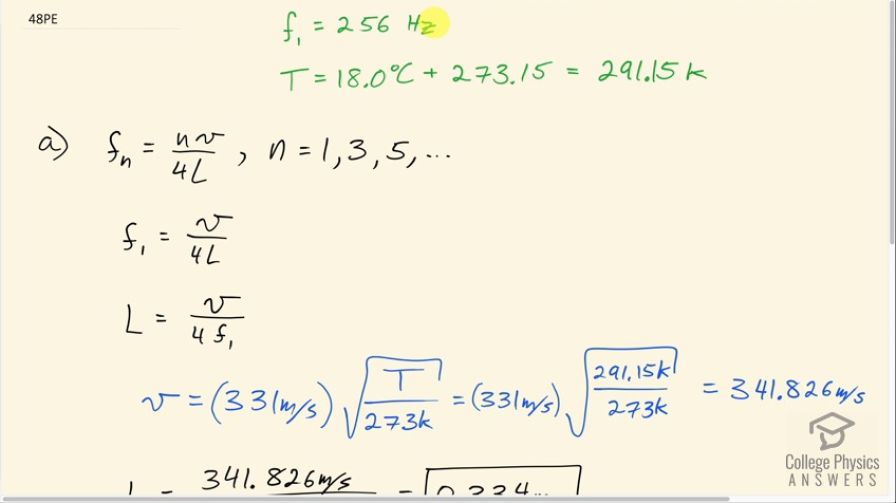 48PE
f₁ = 256 Hz
T = 18.0°C + 273.15 = 291.15 K
a) fₙ = nv/4L, n = 1, 3, 5, ...
f₁ = v/4L
L = v/4f₁
v = (331 m/s) √(T/273K) = (331 m/s) √(291.15K/273K) = 341.826 m/s
341.826 m/s
College Physics
ANSWERS